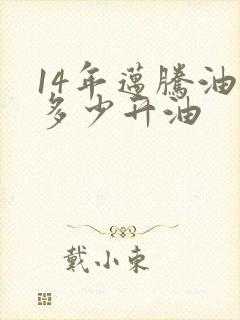 14年邁騰油
多少升油
戴小東